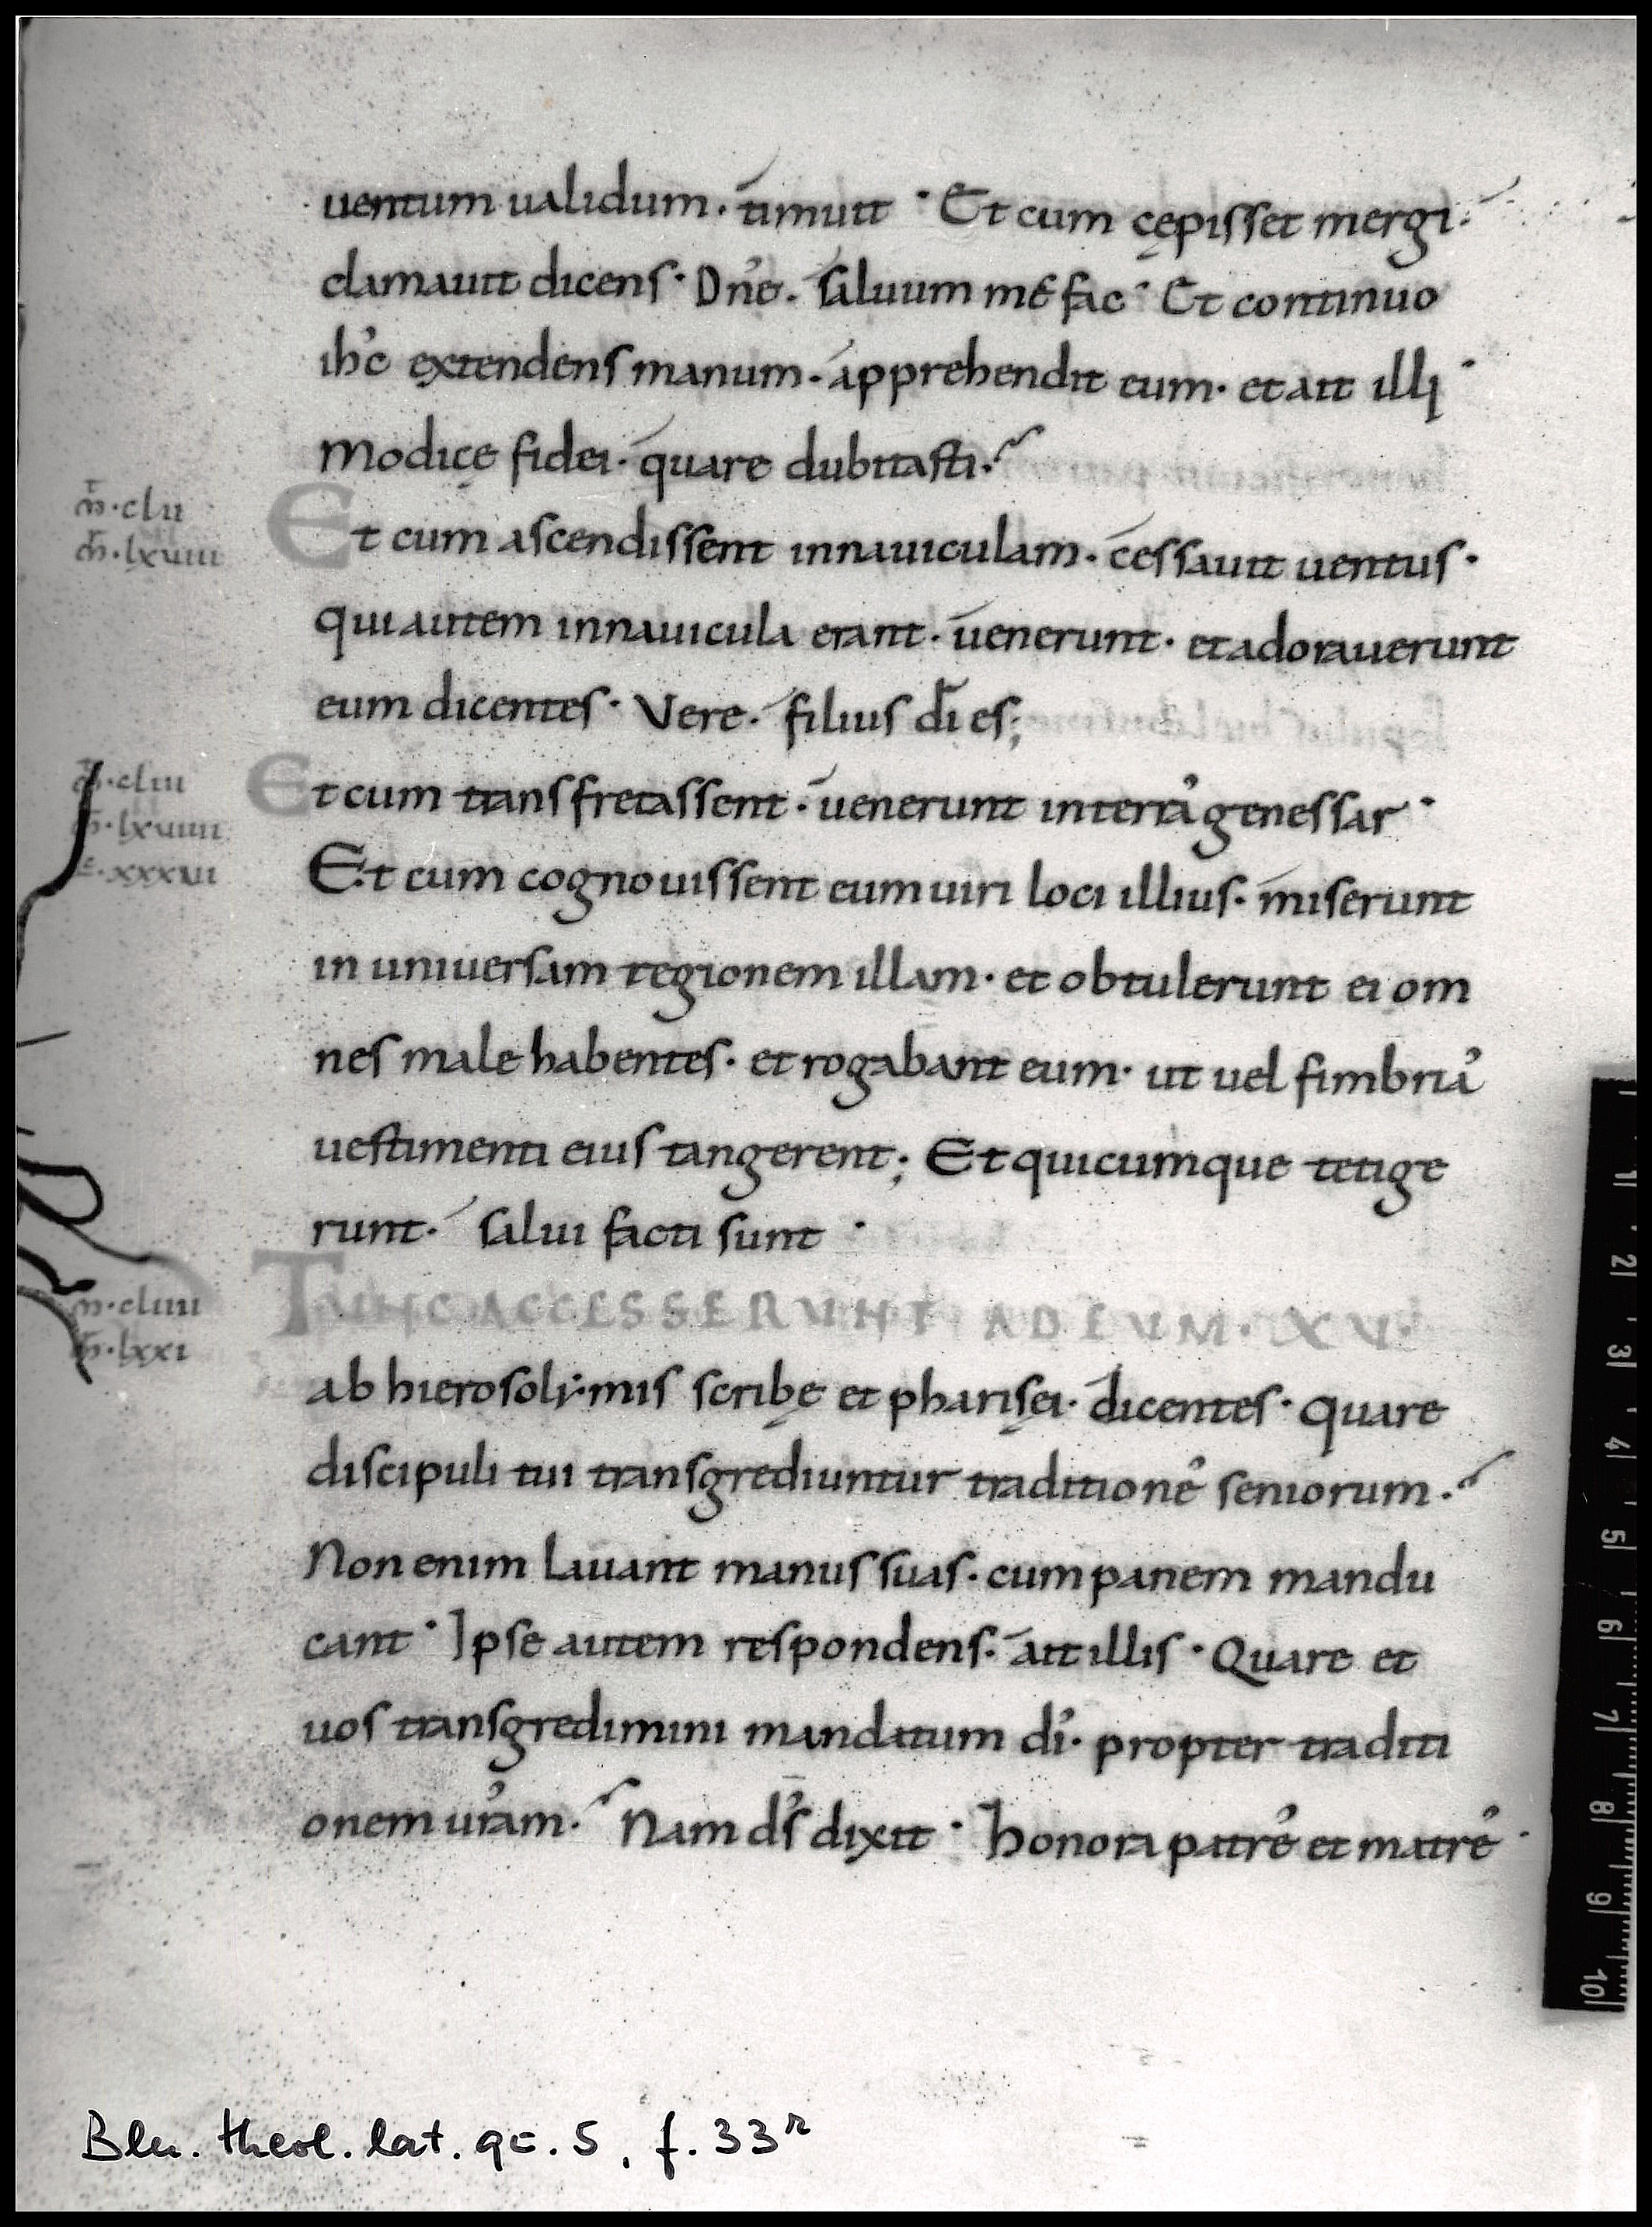 uentum ualidum· timuit · Et cum cępisset mergi·
clamauit dicens· Dn̄e· saluum me fac· Et continuo
ih̄c extendens manum· apprehendit eum· et ait illi·
Modicę fidei· quare dubitasti·
m̄·clii
m̄·lxviii
Et cum ascendissent in nauiculam· cessauit uentus·
qui autem in nauicula erant· uenerunt· et adorauerunt
eum dicentes· Vere· filius dī es;
m̄·cliii
m̄·lxviiii
Et cum transfretassent· uenerunt in terrā genessar·
·xxxvi
Et cum cognouissent eum uiri loci illius· miserunt
in uniuersam regionem illam· et obtulerunt ei om
nes male habentes· et rogabant eum· ut uel fimbriā
uestimenti eius tangerent; Et quicumque tetige
runt· salui facti sunt ·
m̄·cliiii
m̄·lxxi
TUNC ACCESSERUNT AD EUM· XV·
ab hierosolẏmis scribę et pharisęi· dicentes· quare
discipuli tui transgrediuntur traditionē seniorum·
Non enim lauant manus suas· cum panem mandu
cant · Ipse autem respondens· ait illis · Quare et
uos transgredimini mandatum dī· propter traditi
onem ur̄am· Nam d̄s dixit · honora patrē et matrē ·
Bln. theol. lat. qt. 5, f. 33r
1
2
3
4
5
6
7
8
9
10